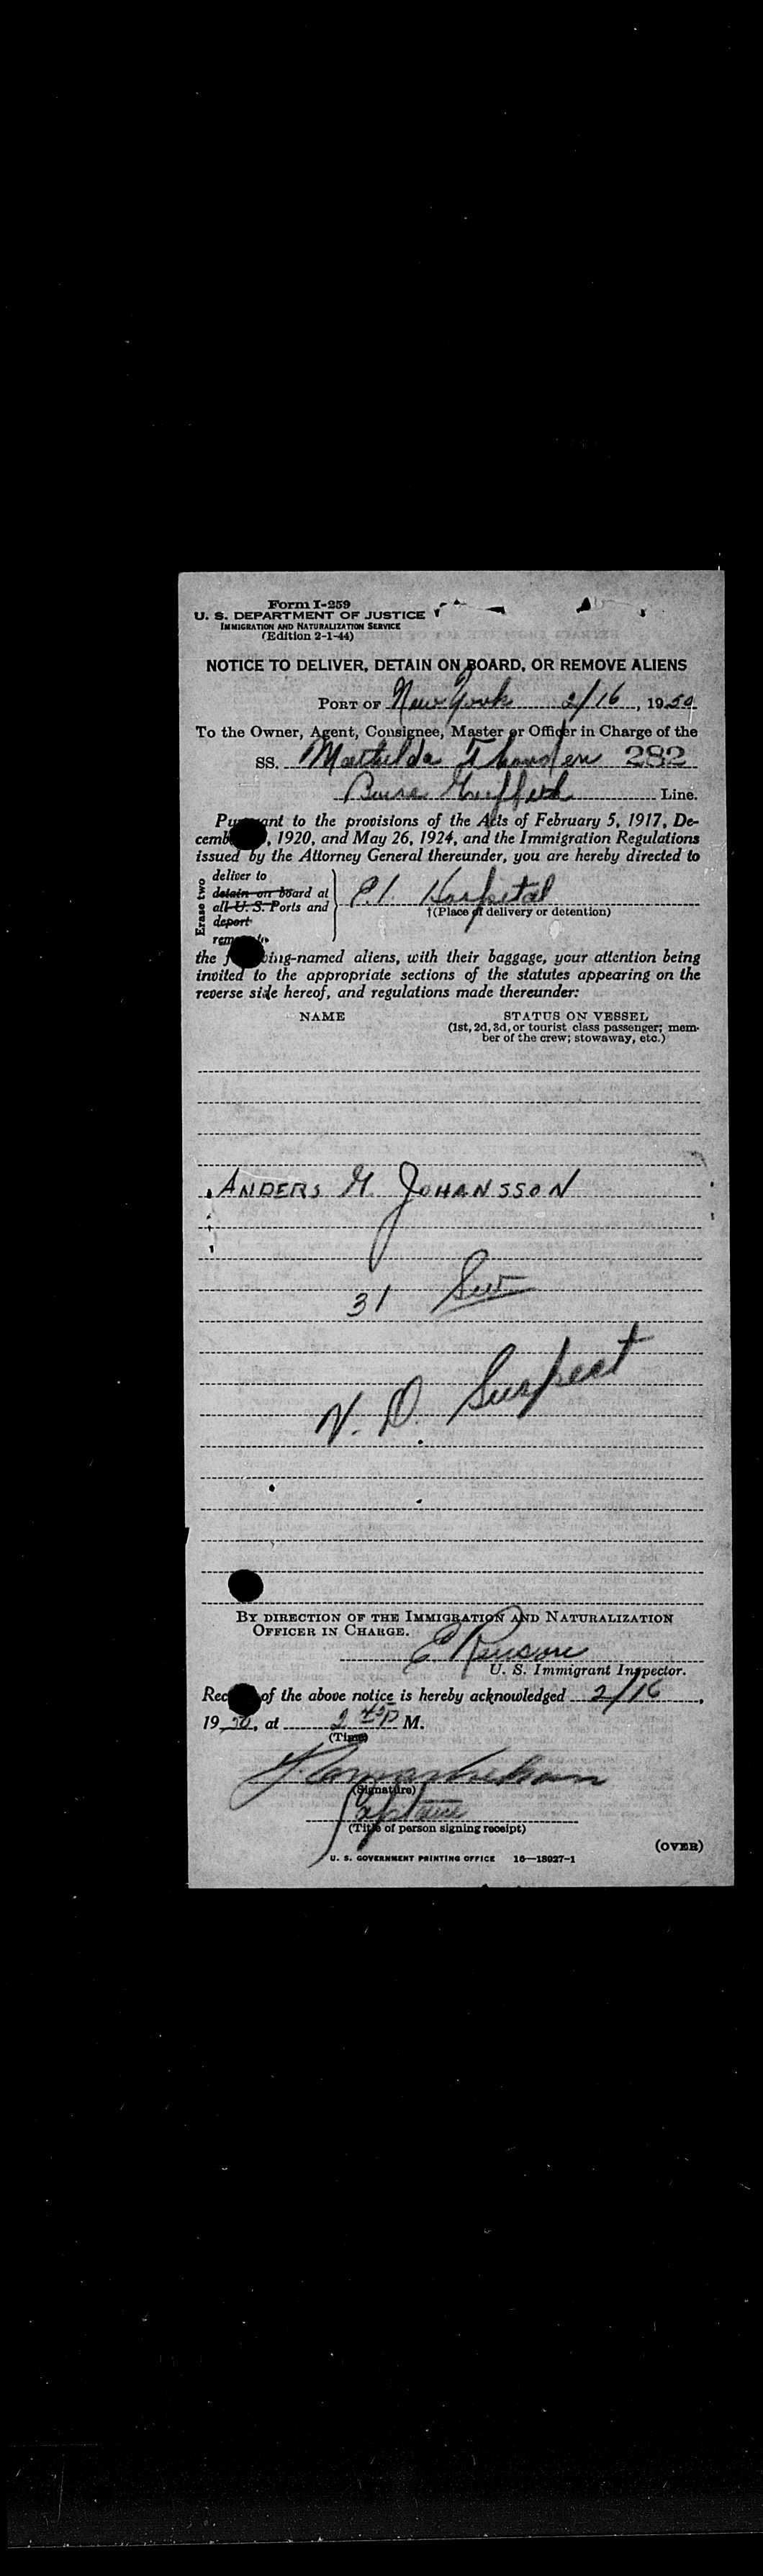 Form I-259
U. S. DEPARTMENT OF JUSTICE
IMMIGRATION AND NATURALIZATION SERVICE
(Edition 2-1-44)
NOTICE TO DELIVER, DETAIN ON BOARD, OR REMOVE ALIENS
PORT OF New York 2/16, 1950
To the Owner, Agent, Consignee, Master or Officer in Charge of the
SS. Mathilda Thorden 282
Line.
Pu ant to the provisions of the Acts of February 5, 1917, De-
cemb , 1920, and May 26, 1924, and the Immigration Regulations
issued by the Attorney General thereunder, you are hereby directed to
Erase two
deliver to
detain on board at
all U. S. Ports and
deport
rem
E.I Hospital
†(Place of delivery or detention)
the f ing-named aliens, with their baggage, your attention being
invited to the appropriate sections of the statutes appearing on the
reverse side hereof, and regulations made thereunder:
NAME STATUS ON VESSEL
(1st, 2d, 3d, or tourist class passenger; mem-
ber of the crew; stowaway, etc.)
ANDERS G. JOHANSSON
31 Swe
V. D. Suspect
BY DIRECTION OF THE IMMIGRATION AND NATURALIZATION
OFFICER IN CHARGE.
U. S. Immigrant Inspector.
Rec of the above notice is hereby acknowledged 2/16,
1950, at 2 P M.
(Time)
(Signature)
Captain
(Title of person signing receipt)
(OVER)
U. S. GOVERNMENT PRINTING OFFICE 16—18927-1